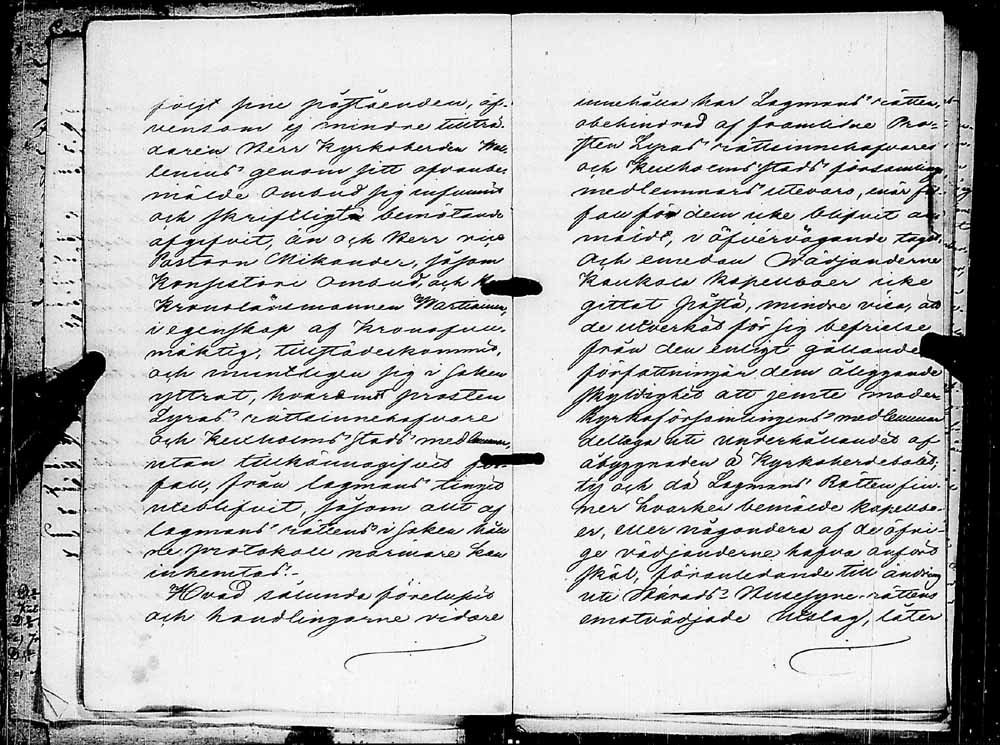 följt sine påståenden, äf-
vensom ej mindre tillträ-
daren Herr Kyrkoherden
lenius genom sitt ofvanbe-
mälde ombud sig infunnit
och skriftligen bemötande
afgifvit, än och Herr vice
Pastorn Mikander, såsom
Konsistorii ombud, och
Kronolänsmannen
i egenskap af Kronofull-
mäktig, tillstädeskommit,
och muntligen sig i saken
yttrat, hvaremot prosten
Lyras' rättsinnehafvare
och Kexholms stads medlemmar,
utan tillkännagifvet för-
fall, från lagmans tinget
uteblifvit, såsom allt af
Lagmans rättens i saken håll-
ne protokoll närmare kan
inhemtas.-
Hvad sålunda förelupit
och handlingarne vidare
innehålla har Lagmans rätten,
obehindrad af framlidne Pro-
sten Lyras' rättsinnehafvares
och Kexholms stads församlings
medlemmars utevaro, enär för-
fall för dem icke blifvit an-
mäldt, i öfvervägande tagit
och emedan Vädjanderne
Kaukola Kapellboer icke
gittat påstå, mindre visa, att
de utverkat för sig befrielse
från den enligt gällande
författningar dem åliggande
skyldighet att jemte moder-
kyrkoförsamlingens medlemmar
deltaga uti underhållandet af
åbyggnaden å Kyrkoherdebolet,
ty och då Lagmans Rätten fin-
ner hvarken bemälde kapellbo-
er, eller någondera af de öfri-
ge vädjanderne hafva anfört
skäl, föranledande till ändring
uti Härads Husesyne-rättens
emotvädjade Utslag, låter